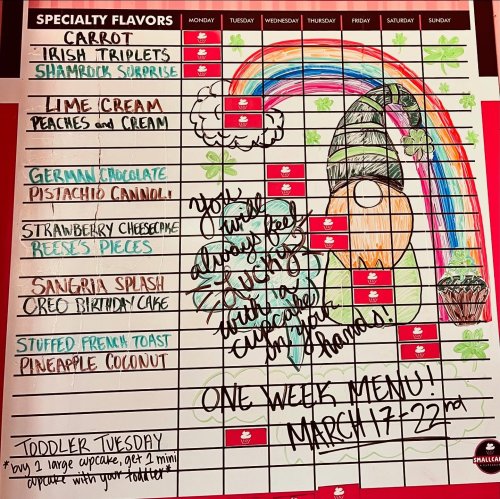 SPECIALTY FLAVORS MONDAY TUESDAY WEDNESDAY THURSDAY FRIDAY SATURDAY SUNDAY
CARROT
IRISH TRIPLETS
SHAMROCK SURPRISE
LIME CREAM
PEACHES and CREAM
GERMAN CHOCOLATE
PISTACHIO CANNOLI
STRAWBERRY CHEESECAKE
REESE'S PIECES
SANGRIA SPLASH
OREO BIRTHDAY CAKE
STUFFED FRENCH TOAST
PINEAPPLE COCONUT
you
will
always feel
Lucky
with a
cupcake
in your
hands!
ONE WEEK MENU!
MARCH 17-22nd
TODDLER TUESDAY
*buy 1 large cupcake, get 1 mini
cupcake with your toddler*
SMALLCAKES